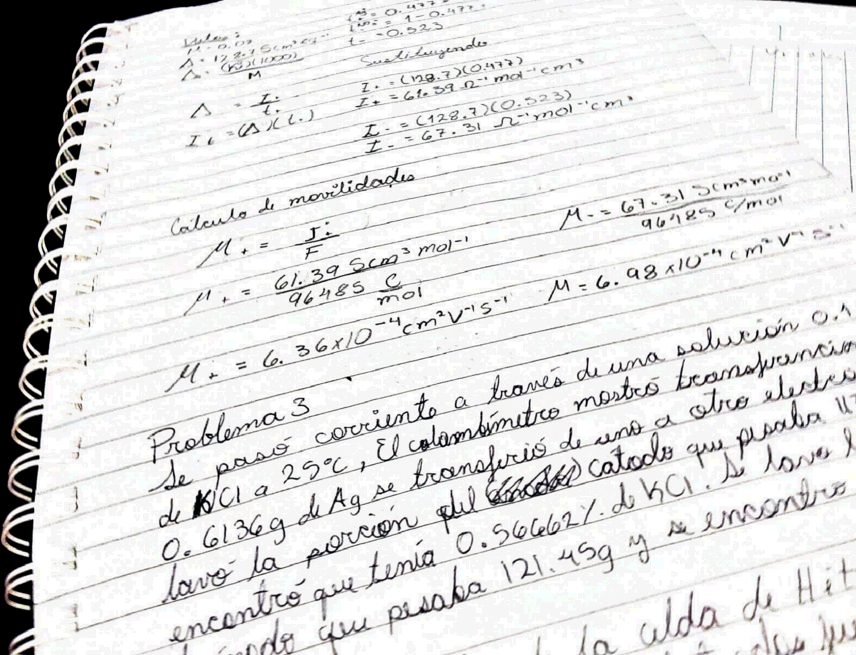 t+ = 0.477
t- = 1-0.477
t- = 0.523
Λ = 128.7 Scm² eq⁻¹
Λ = (K)(1000)
M
Sustituyendo
Λ = I+ / t+
I+ = (128.7)(0.477)
I+ = 61.39 Ω⁻¹ mol⁻¹ cm³
I+ = (Λ)(t+)
I- = (128.7)(0.523)
I- = 67.31 Ω⁻¹ mol⁻¹ cm³
Calculo de movilidades
M+ = I+ / F
M- = 67.31 Scm³ mol⁻¹ / 96485 C/mol
M+ = 61.39 Scm³ mol⁻¹ / 96485 C/mol
M = 6.98x10⁻⁴ cm² V⁻¹ s⁻¹
M+ = 6.36x10⁻⁴ cm² V⁻¹ s⁻¹
Problema 3
Se pasó corriente a través de una solución 0.1
de KCl a 25°C, El coloumbímetro mostró
0.6136g de Ag se transfirió de uno a otro
lavó la porción del catodo que pesaba
encontró que tenía 0.56662% de KCl. Se lavo
que pesaba 121.45g y se encontró
la celda de Hit